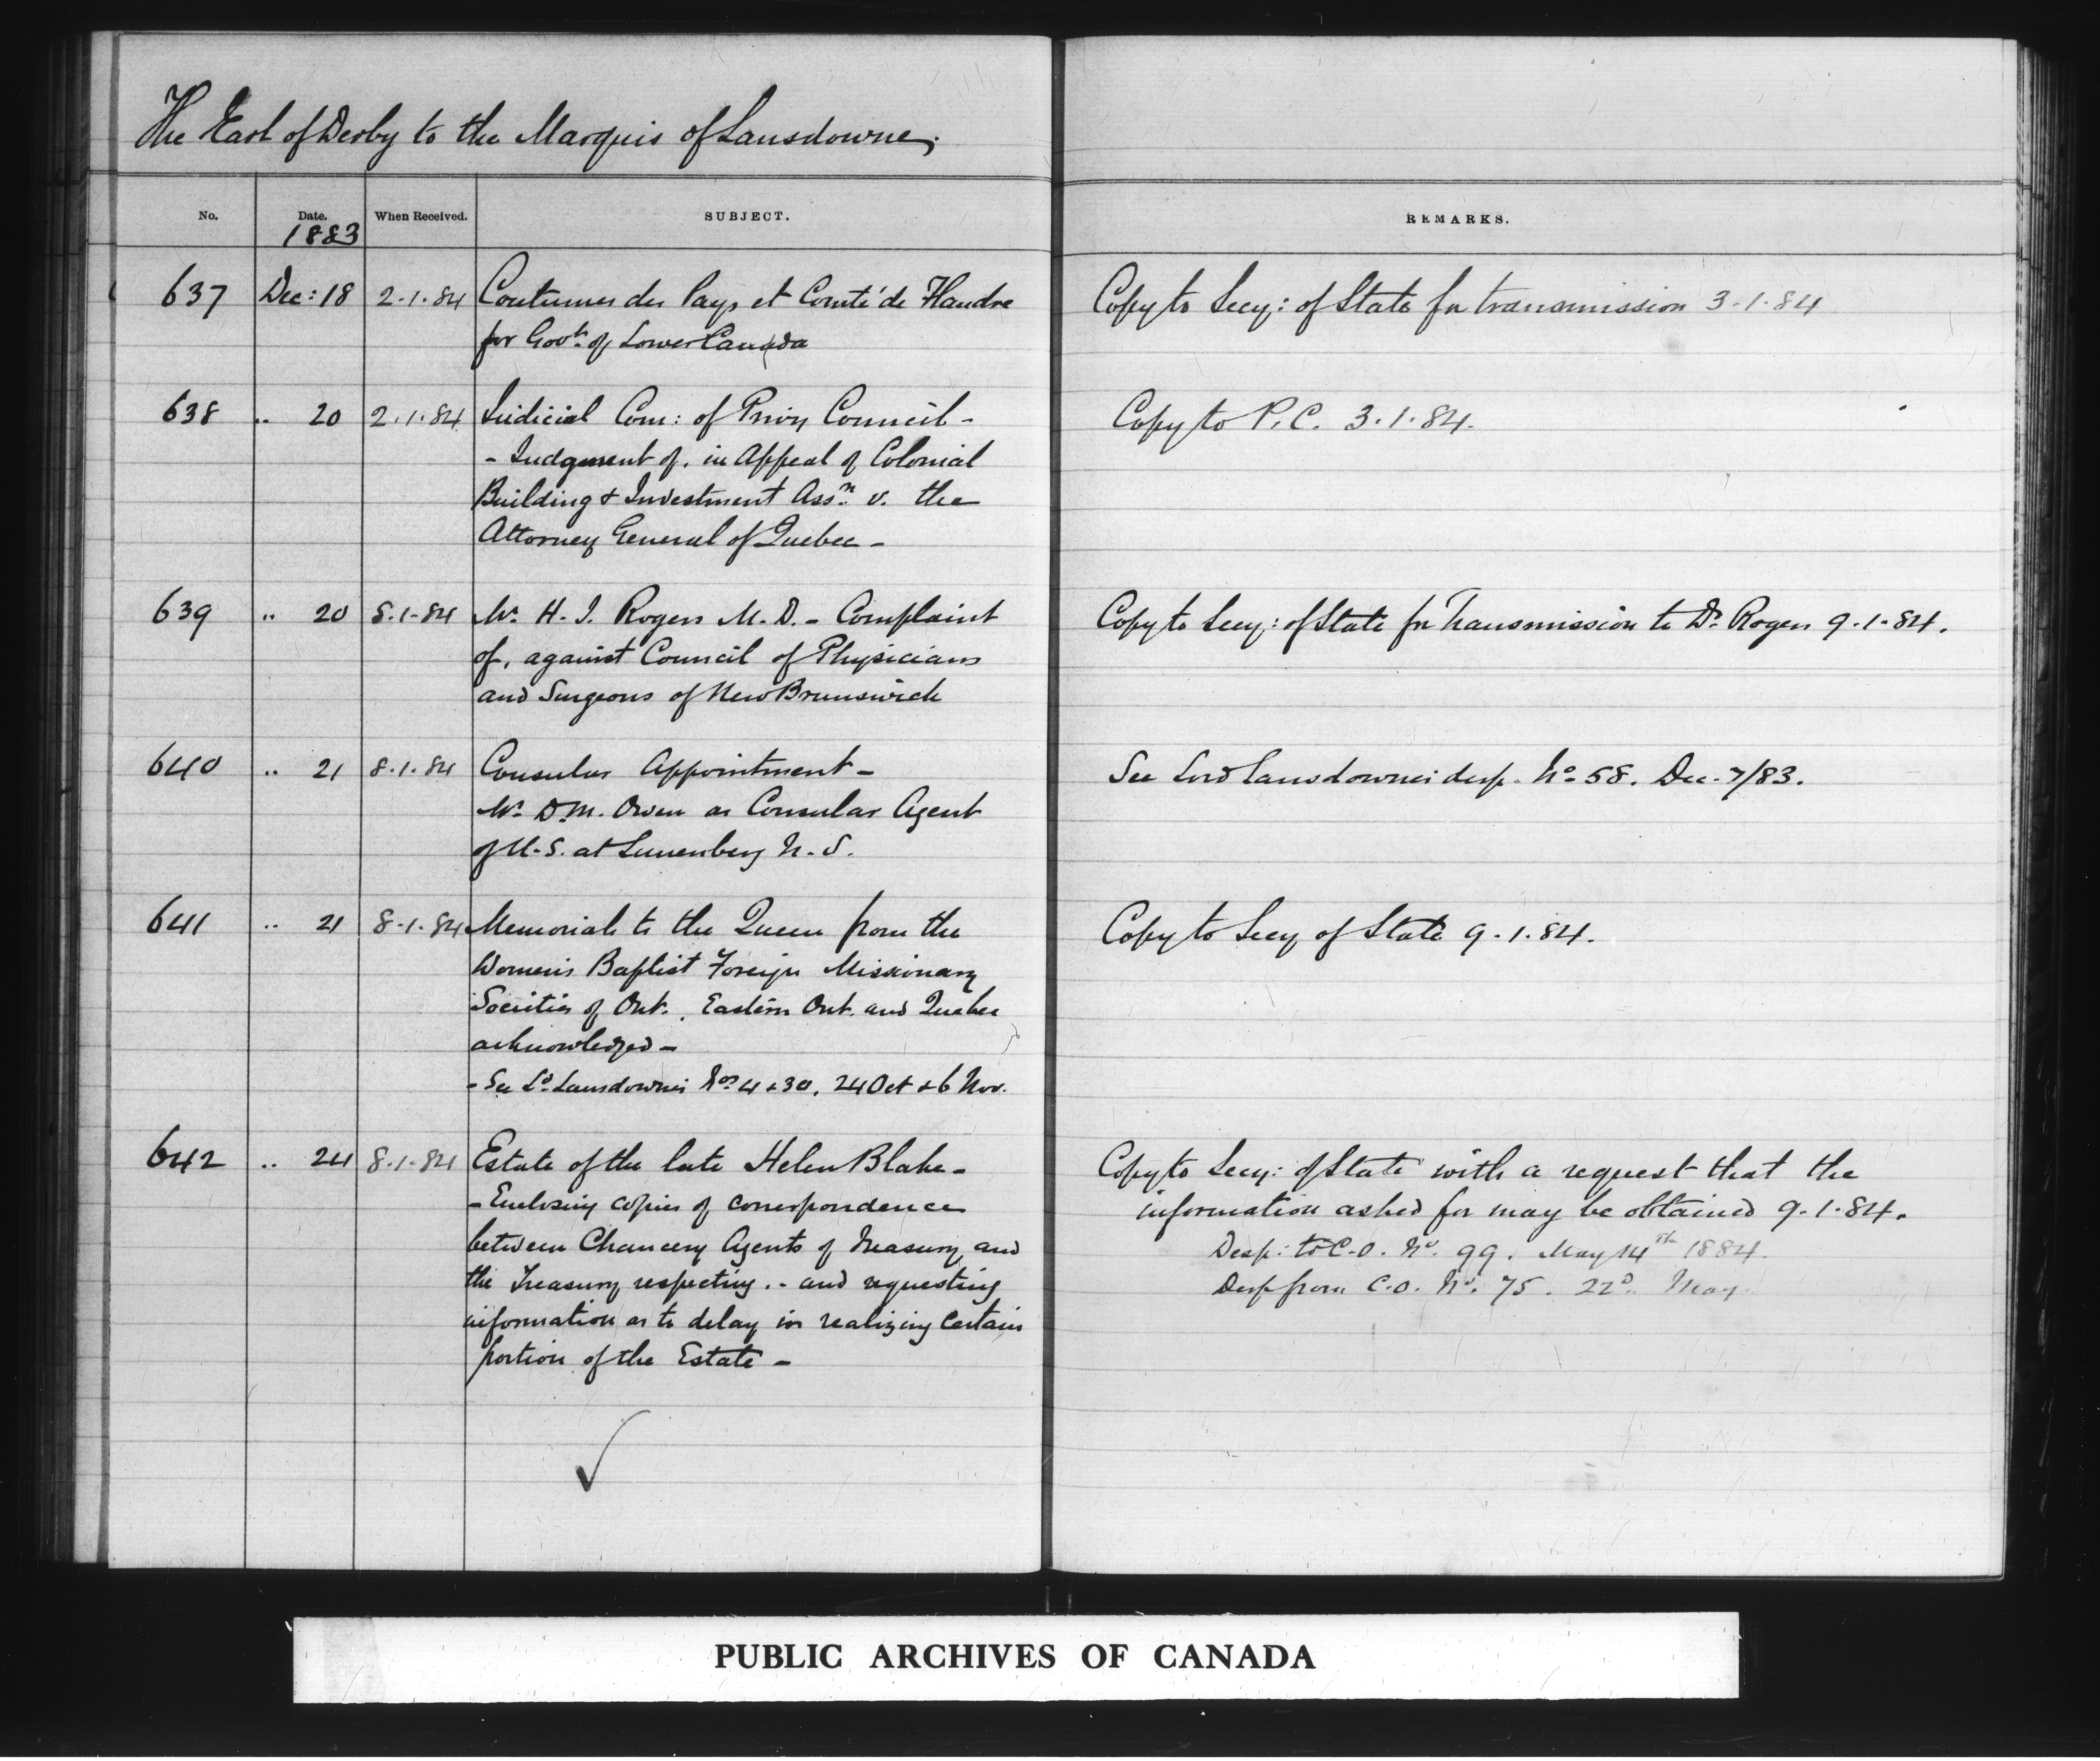 The Earl of Derby to the Marquis of Lansdowne.
No. Date. When Received. SUBJECT. REMARKS.
1883
637 Dec: 18 2.1.84 Coutumes des Pays et Comté de Flandre Copy to Secy: of State for transmission 3.1.84
for Govt. of Lower Canada
638 .. 20 2.1.84 Judicial Com: of Privy Council - Copy to P.C. 3.1.84.
- Judgment of, in Appeal of Colonial
Building & Investment Assn. v. the
Attorney General of Quebec -
639 .. 20 8.1.84 Mr. H. J. Rogers M.D. - Complaint Copy to Secy: of State for Transmission to Dr. Rogers 9.1.84.
of, against Council of Physicians
and Surgeons of New Brunswick
640 .. 21 8.1.84 Consular Appointment - See Lord Lansdowne's desp. No. 58. Dec. 7/83.
Mr. D.M. Owen as Consular Agent
of U.S. at Lunenberg N.S.
641 .. 21 8.1.84 Memorials to the Queen from the Copy to Secy of State 9.1.84.
Women's Baptist Foreign Missionary
Societies of Ont., Eastern Ont. and Quebec
acknowledged -
- See Ld. Lansdowne's Nos. 4 & 30, 24 Oct & 6 Nov.
642 .. 24 8.1.84 Estate of the late Helen Blake - Copy to Secy: of State with a request that the
- Enclosing copies of correspondence information asked for may be obtained 9.1.84.
between Chancery Agents of Treasury and Desp: to C.O. No. 99. May 14th 1884.
the Treasury respecting. - and requesting Desp from C.O. No. 75. 22d. May
information as to delay in realizing certain
portion of the Estate -
PUBLIC ARCHIVES OF CANADA